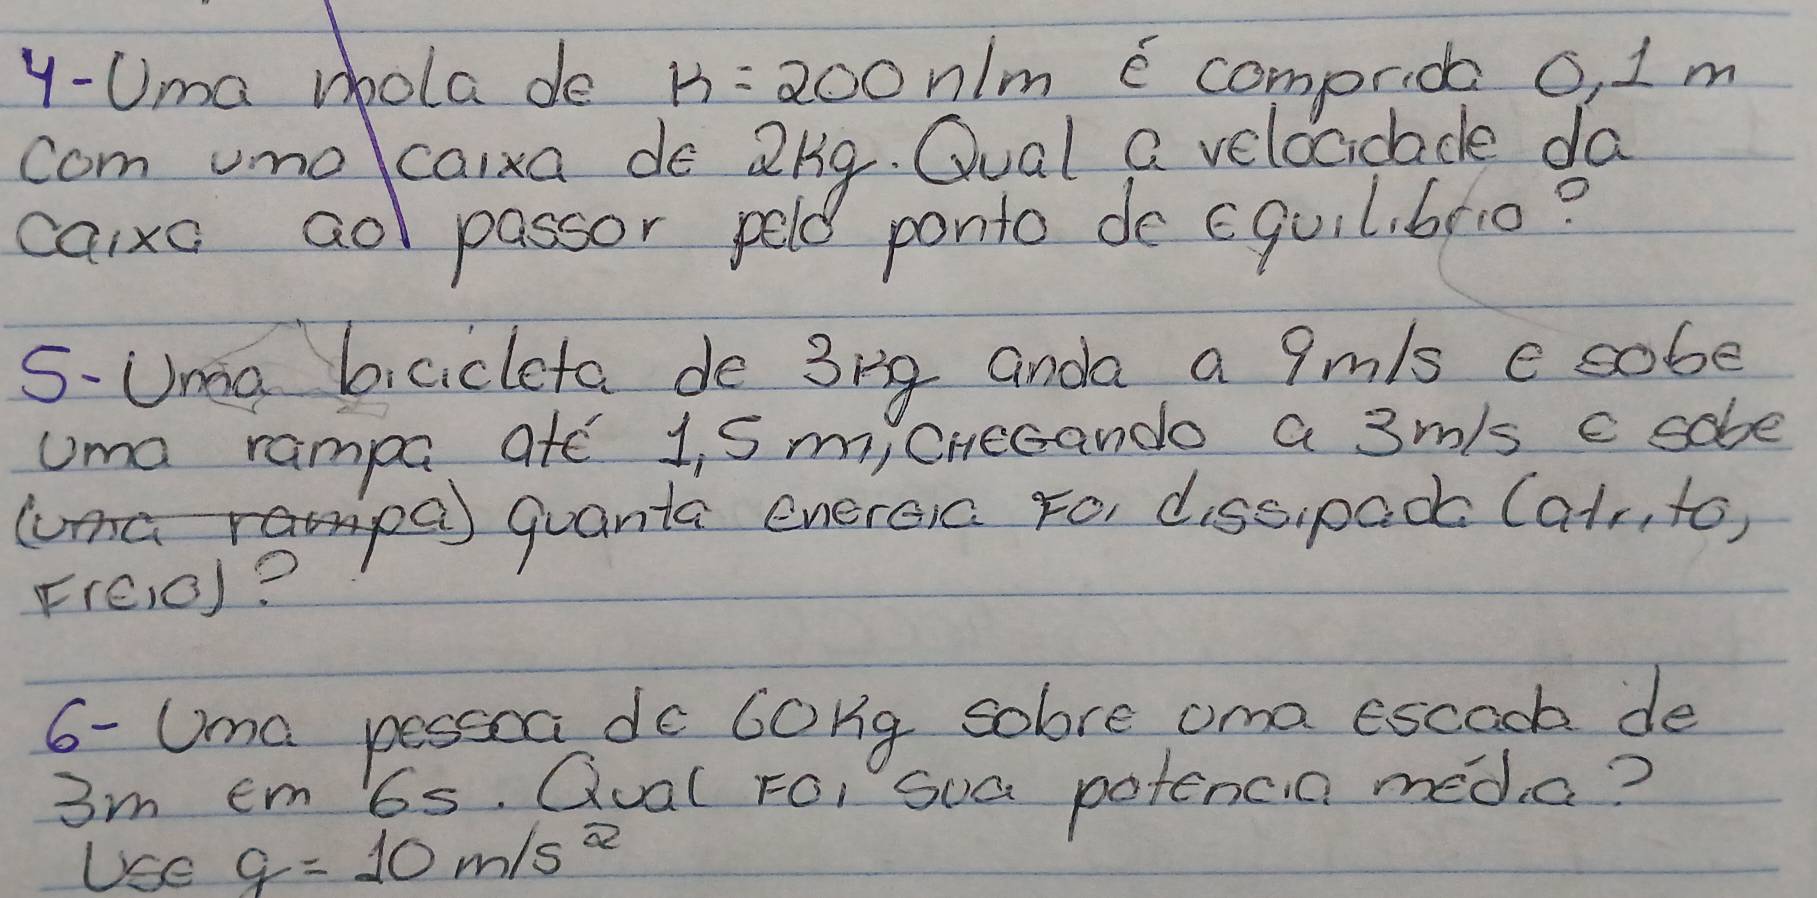 4-Uma mola de K=200n/m é comprida 0,1 m
com uma caixa de 2Kg. Qual a velocidade da
caixa ao passar pelo ponto de equilíbrio?
5-Uma bicicleta de 3Kg anda a 9m/s e sobe
uma rampa até 1,5 m, CHEGando a 3m/s e sobe
(uma rampa) quanta energia Foi dissipada (atrito,
Freio)?
6- Uma pessoa de 60Kg sobre uma escada de
3m em 6s. Qual Foi sua potência média?
Use g=10 m/s²